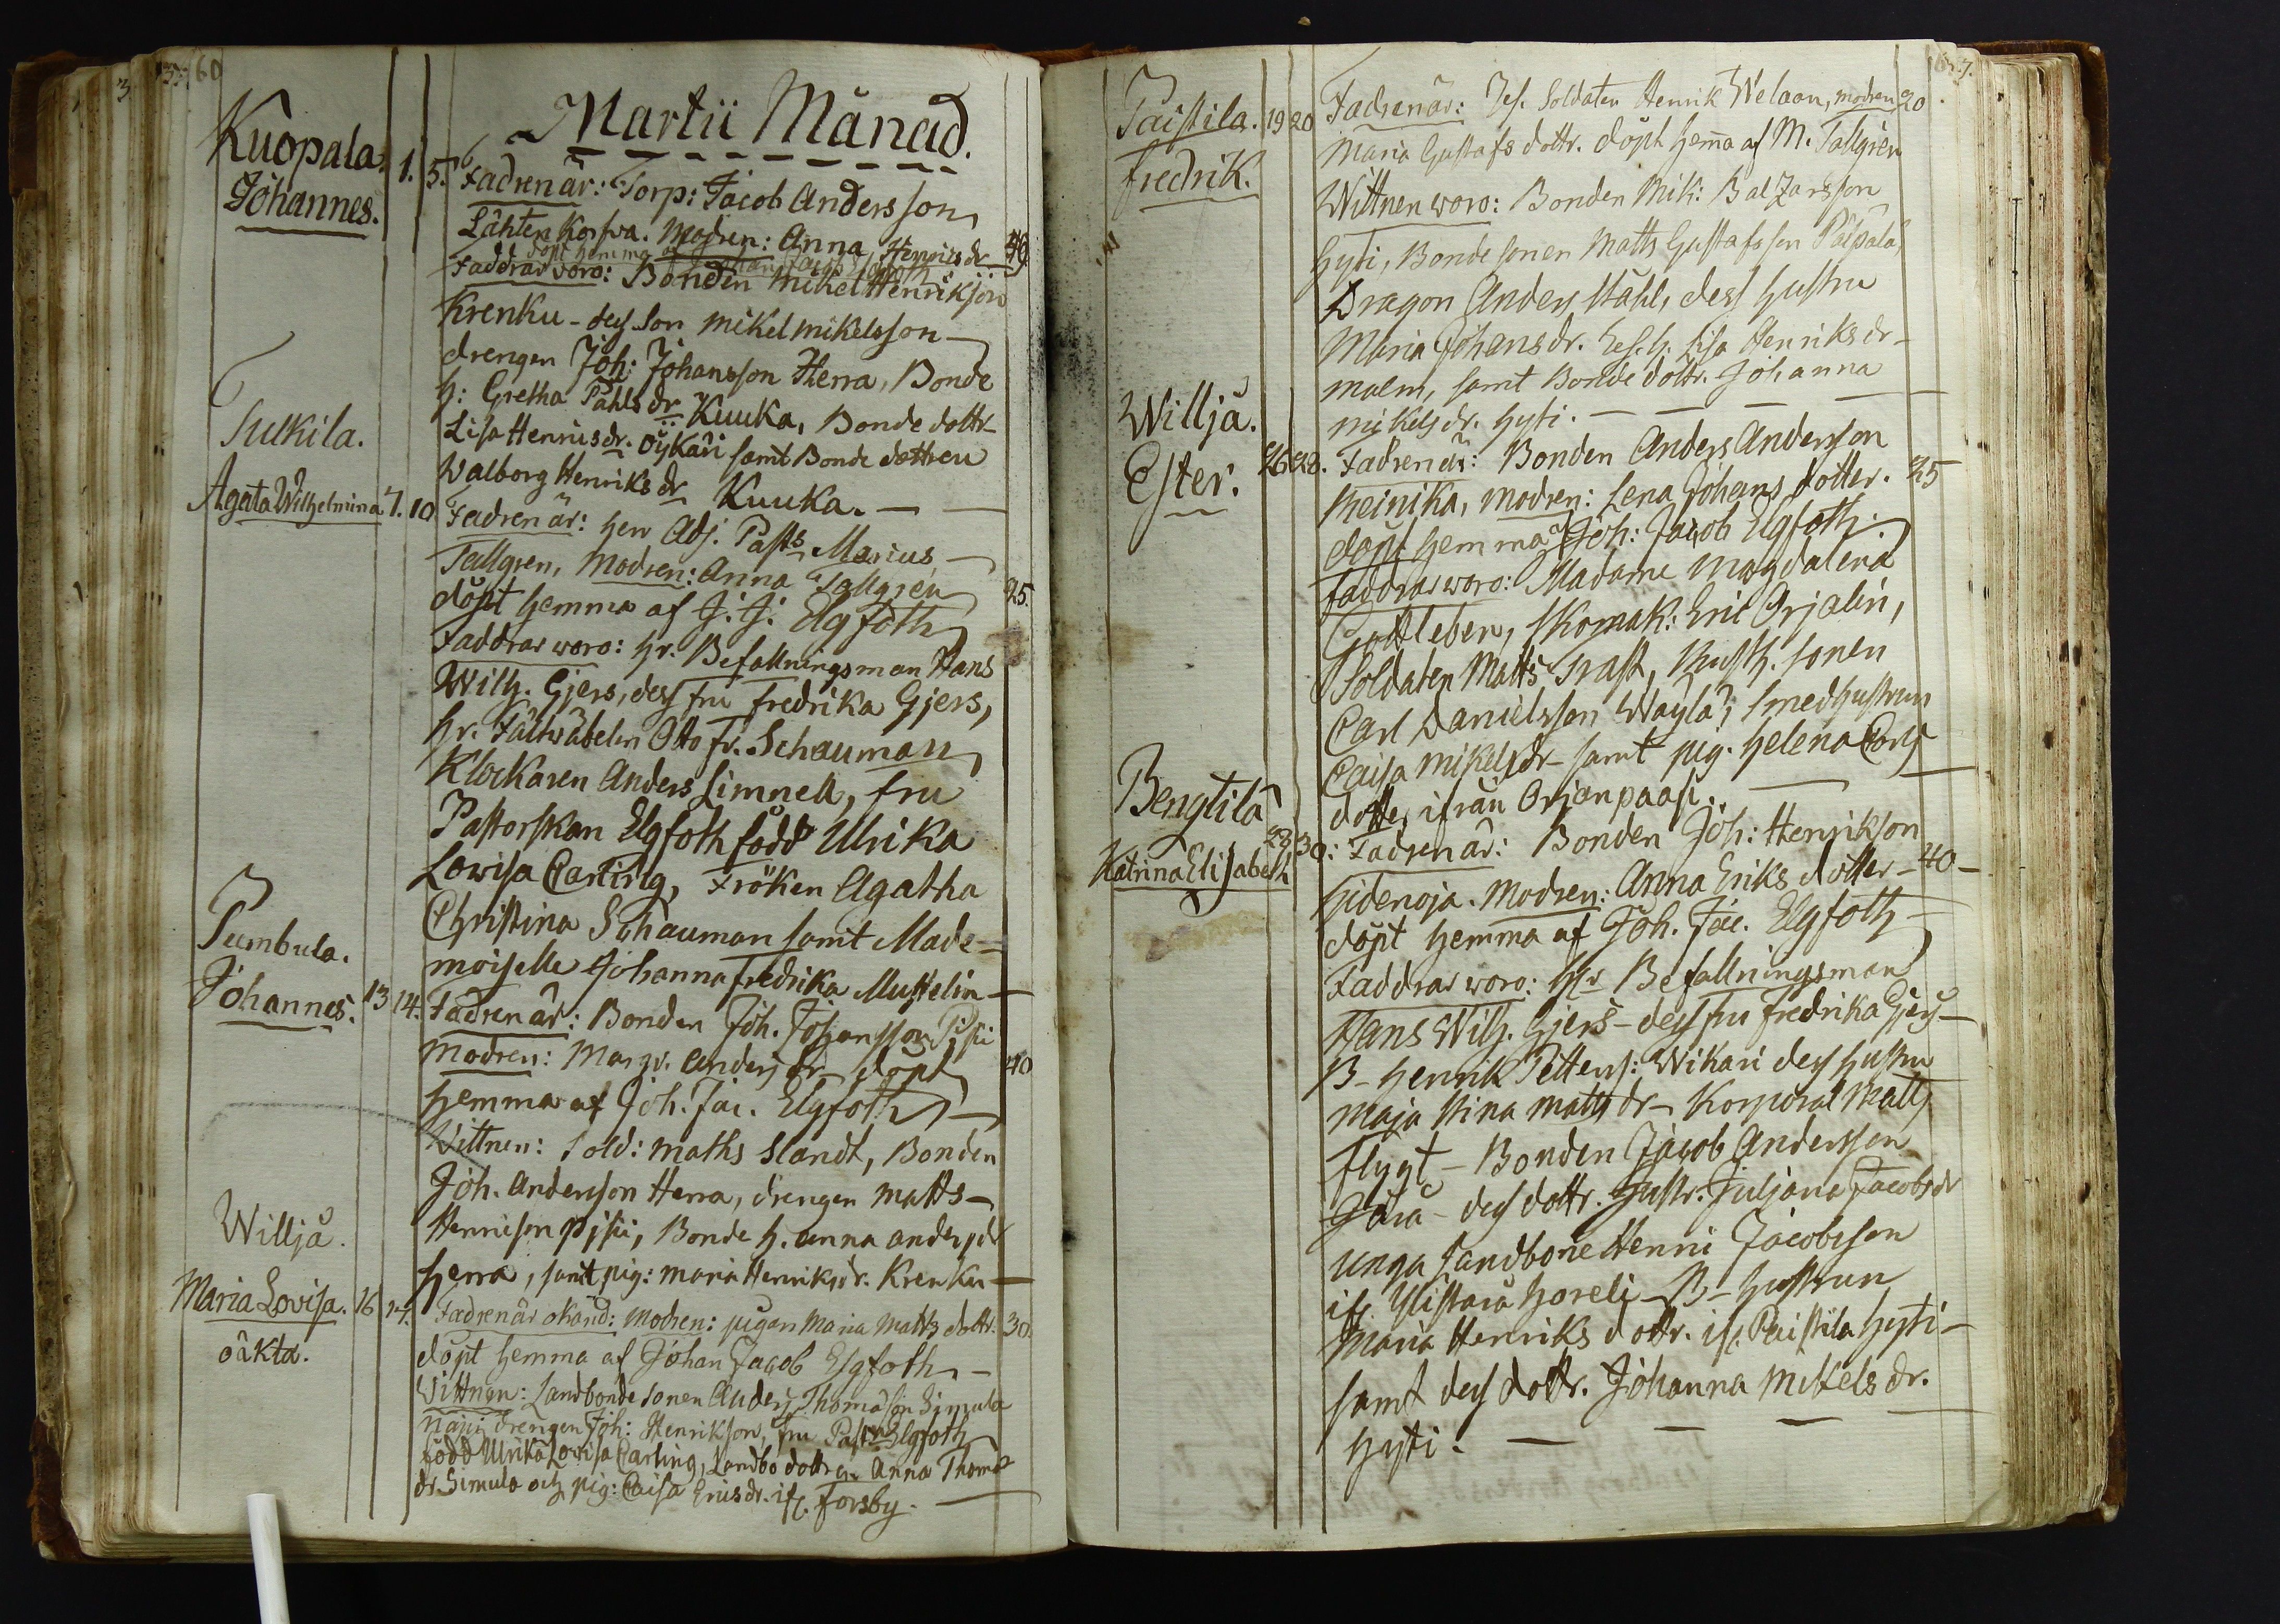 60
Martii Månad.
Kuopala.
Johannes.
1. 5. Fadren är: Torp: Jacob Andersson
Lähten Korfva. Modren: Anna Henricsdr 40
döpt hemma af Johan Jacob Elgfoth
Faddrar voro: Bonden Mikel Henriksson
Krenku - dess Son Mikel Mikelsson -
drengen Joh: Johansson Herra, Bonde
h: Gretha Påhlsdr Kuuka, Bonde dottr
Lisa Henricsdr. Öykäri samt Bonde dottren
Walborg Henriksdr Kuuka. -
Sulkila.
Agata Wilhelmina 7. 10 Fadren är: Herr Adj. Past. Marius
Tallgren, Modren: Anna Tallgren 25.
döpt hemma af J. J. Elgfoth
Faddrar woro: Hr. Befallningsman Hans
Wilh. Gjers, dess fru Fredrika Gjers,
Hr. Fältväbelen Otto Fr. Schauman
Klockaren Anders Limnell, fru
Pastorskan Elgfoth född Ulrika
Lowisa Carling, Fröken Agatha
Christina Schauman samt Made-
moiselle Johanna Fredrika Mustelin -
Pumbula.
Johannes. 13 14. Fadren är: Bonden Joh. Johansson Pisii
Modren: Margr. Andersdr döpt 40
hemma af Joh. Jac. Elgfoth -
Vittnen: Sold: Maths Slandt, Bonden
Joh. Andersson Herra, drengen Matts -
Henricson Pisii, Bonde h. Anna Andersdr
Herra, samt pig: Maria Henriksdr. Krenku -
Williä.
Maria Lovisa. 16 17. Fadren är okänd: Modren: pigan Maria Matts dottr. 30.
oäkta.
döpt hemma af Johan Jacob Elgfoth -
Vittnen: Landbonde sonen Anders Thomasson Simula
drengen Joh: Henrikson, fru Past. Elgfoth
född Ulrika Lovisa Carling, Landbo dottren Anna Thomas
dr. Simula och pig: Caisa Ericsdr. ifr. Forsby. -
Paistila. 19 20 Fadren är: Res. Soldaten Henrik Welaon, modren 20
Fredrik.
Maria Gustafs dottr. döpt hemma af M. Tallgren
Wittnen woro: Bonden Mik: Balzarsson
Hyti, Bonde sonen Matts Gustafsson Paipala,
Dragon Anders Ståhl, dess hustru
Maria Johansdr. Res. h. Lisa Henriksdr -
Malm, samt Bonde dottr. Johanna
Mikelsdr. Hyti. -
Williä.
Ester. 26 28. Fadren är: Bonden Anders Andersson
Reinika, Modren: Lena Johans dotter. 25
döpt hemma af Joh: Jacob Elgfoth.
Faddrar woro: Madame Magdalena
Gottleben, Skomak: Eric Orjalin,
Soldaten Matts Rast, Rusth. sonen
Carl Danielsson Wäylä, Smedhustrun
Caisa Mikelsdr samt pig. Helena Carls
dotter ifrån Orjanpaasi. -
Bengtilä
Katrina Elisabeth 28 30. Fadren är: Bonden Joh: Henrikson
Hidenoja. Modren: Anna Eriks dotter - 40 -
döpt hemma af Joh. Jac. Elgfoth -
Faddrar woro: Hr Befallningsman
Hans Wilh. Gjers - dess fru Fredrika Gjers -
B - Henrik Petters: Wikari dess hustru
Maja Stina Mattsdr - Korporal Matts
Flygt - Bonden Jacob Andersson
Jära - dess dottr. Hustr. Juliana Jacobsdr
unga Landbone Henric Jacobsson
ifr. Ylistaro Horeli - B - Hustrun
Maria Henriks dottr. ifr. Paistila Hyti -
samt dess dottr. Johanna Mikelsdr.
Hyti. -